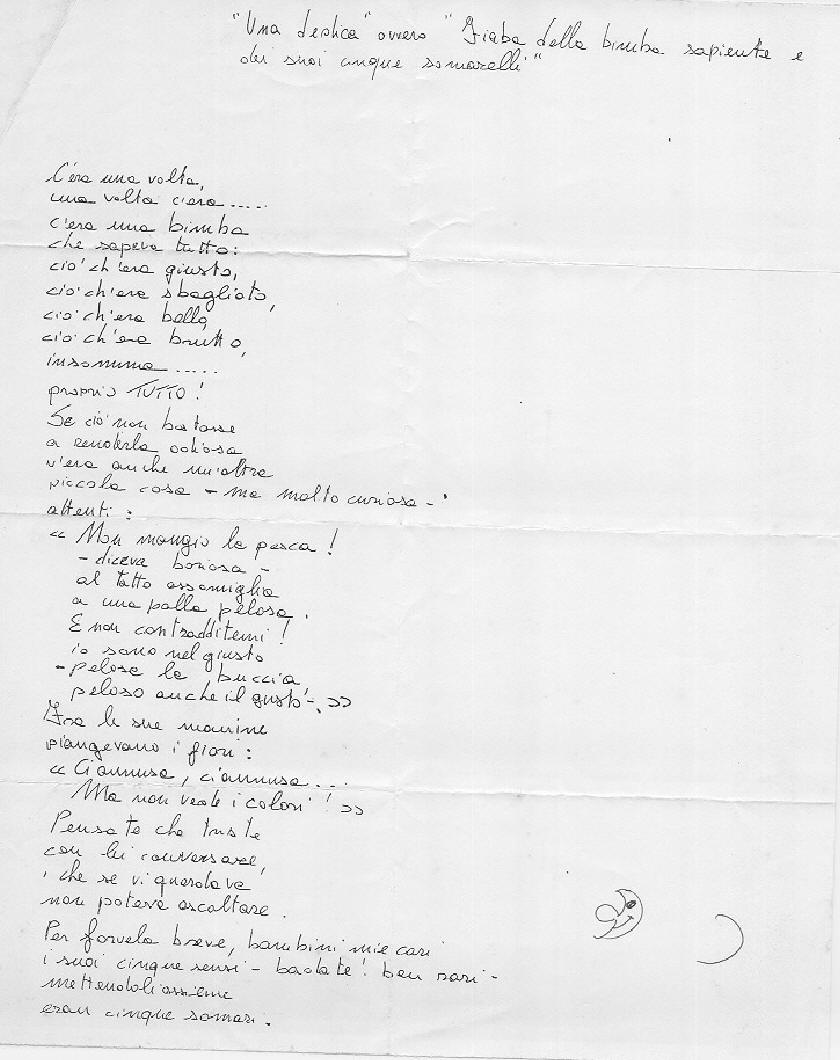 "Una dedica" ovvero "Fiaba della bimba sapiente e
dei suoi cinque somarelli"
C'era una volta,
una volta c'era .....
c'era una bimba
che sapeva tutto:
ciò ch'era giusto,
ciò ch'era sbagliato,
ciò ch'era bello,
ciò ch'era brutto,
insomma .....
proprio TUTTO!
Se ciò non bastasse
a renderla odiosa
v'era anche un'altra
piccola cosa - ma molto curiosa -
attenti:
« Non mangio la pesca!
- diceva boriosa -
al tatto assomiglia
a una palla pelosa.
E non contradditemi!
io sono nel giusto
- pelosa la buccia
peloso anche il gusto -. »
Fra le sue manine
piangevano i fiori:
« Ci annusa, ci annusa ...
Ma non vede i colori! »
Pensate che triste
con lei conversare,
che se vi guardava
non poteva ascoltare.
Per farvela breve, bambini miei cari
i suoi cinque sensi - badate! ben rari -
mettendoli assieme
eran cinque somari.